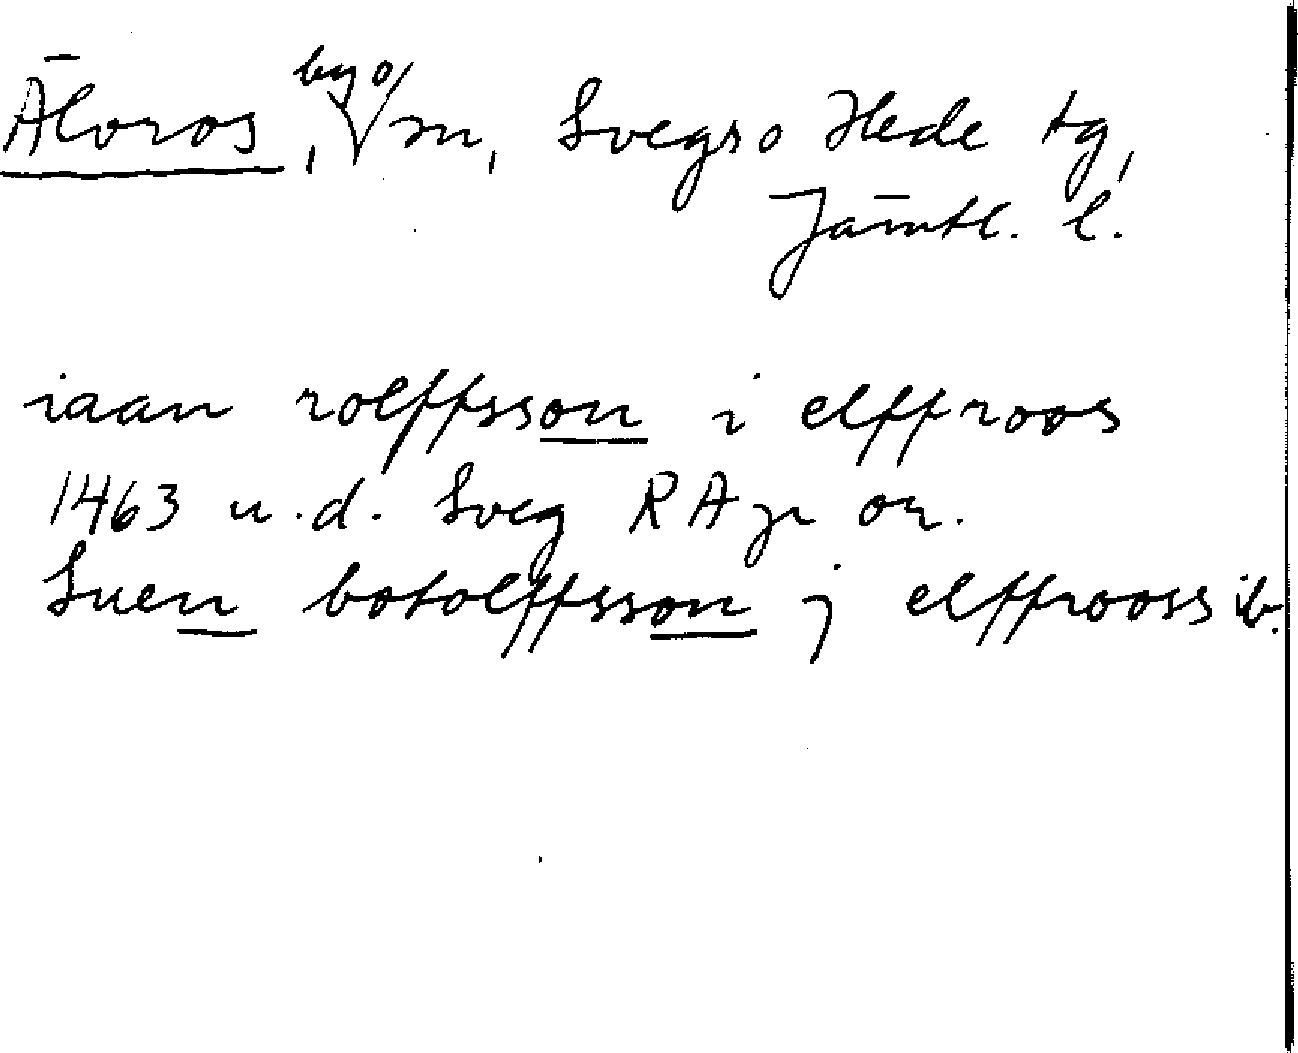 Älvros, by o/ sn, Svegs o Hede tg,
Jämtl. l.
iaan rolffsson i elffroos
1463 u.d. Sveg RAp or.
Suen botolffsson j elffrooss ib.